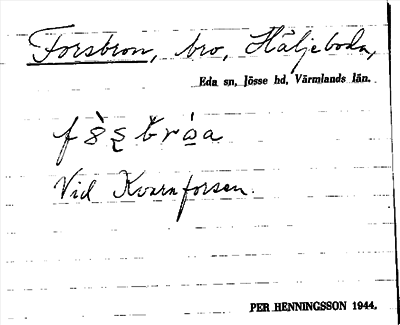 Forsbron, bro, Häljeboda,
Eda sn, Jösse hd, Värmlands län.
Vid Kvarnforsen.
PER HENNINGSSON 1944.